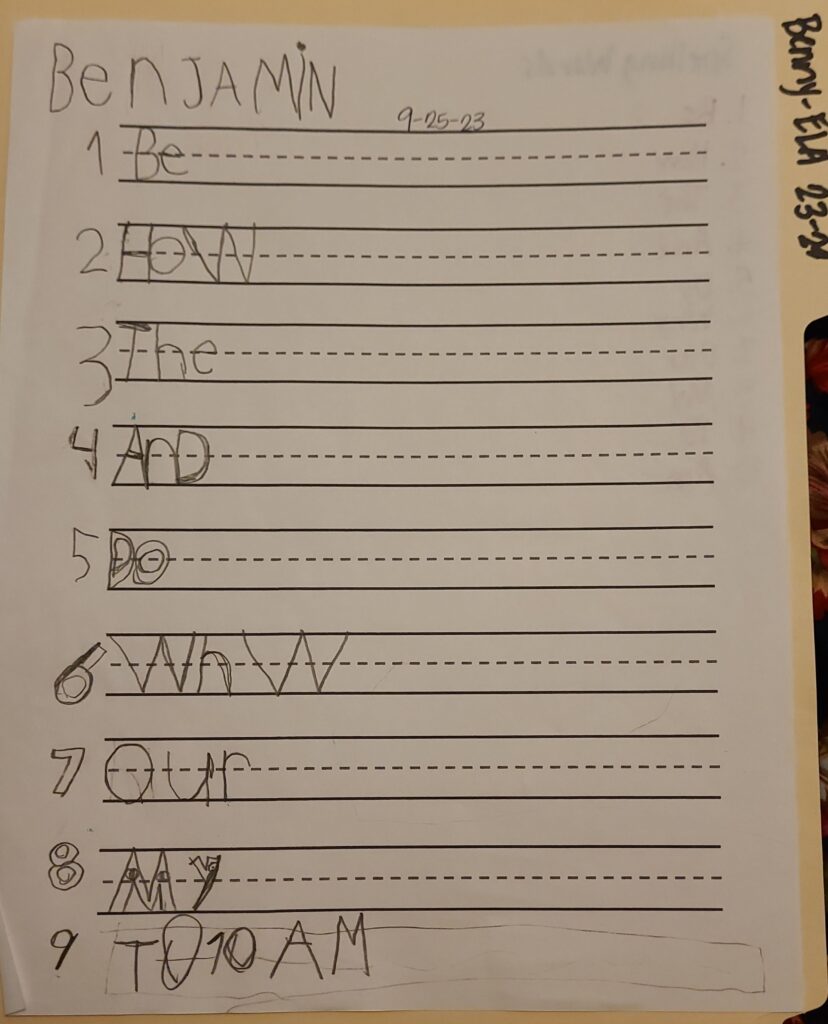 BenJAMiN
9-25-23
1 Be
2 HoW
3 The
4 AnD
5 Do
6 WhW
7 Our
8 My
9 TO 10 AM
Benny-ELA 23-24